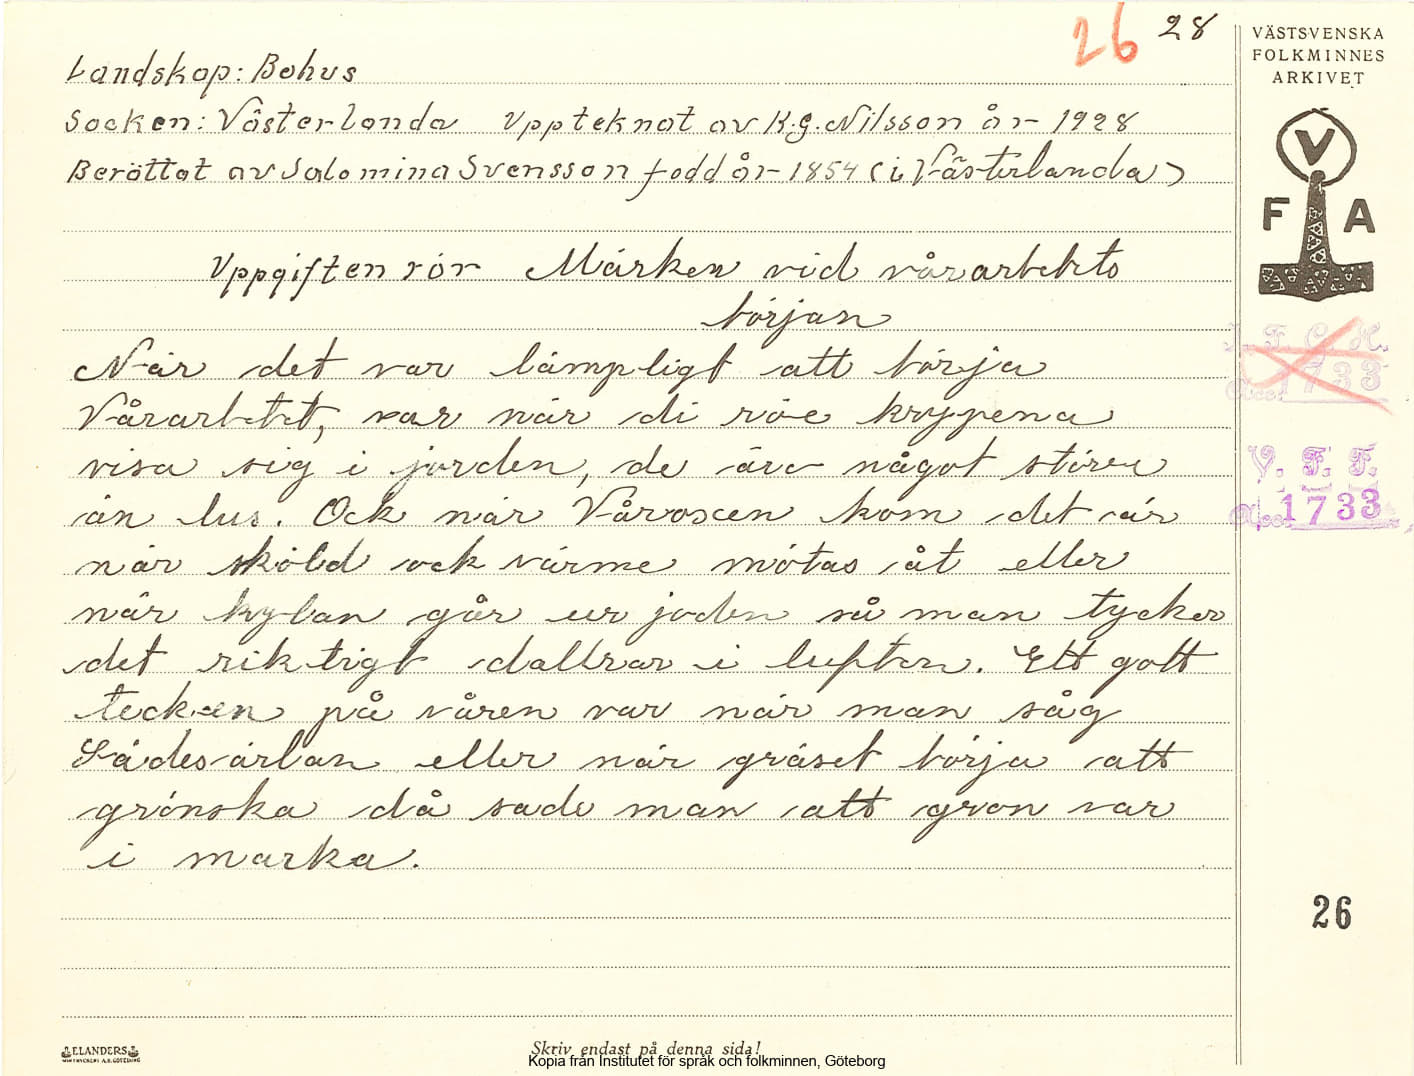 26 28
VÄSTSVENSKA
FOLKMINNES
ARKIVET
Landskap: Bohus
Socken: Västerlanda Upptecknat av K.G. Nilsson år 1928
Berättat av Salomina Svensson född år 1854 (i Västerlanda)
V
F A
Uppgiften rör Märken vid vårarbetets
början
När det var lämpligt att börja
Vårarbetet, var när di röe kryppena
visa sig i jorden, de äro något större
än lus. Ock när Våroxen kom det är
när sköld ock värme mötas åt eller
när kylan går ur joden så man tycker
det riktigt dallrar i luften. Ett gott
tecken på våren var när man såg
Sädesärlan eller när gräset börja att
grönska då sade man att gron var
i marka.
V. F. F.
Acc. 1733
26
ELANDERS
Skriv endast på denna sida!
Kopia från Institutet för språk och folkminnen, Göteborg